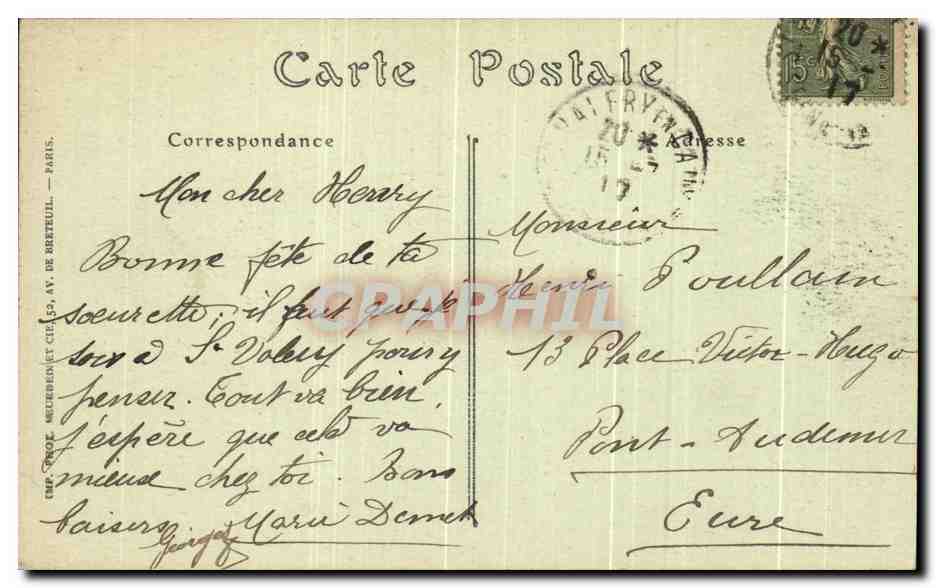 Carte Postale
Correspondance
Adresse
IMP. PHOT. NEURDEIN ET CIE, 52, AV. DE BRETEUIL. — PARIS.
VALERY EN CAUX
20 *
15
17
15c
20 *
15
17
Mon cher Henry
Bonne fête de ta
sœurette, il faut que je
sois à St Valery pour y
penser. Tout va bien,
j'espère que cela va
mieux chez toi. Bons
baisers. Marie
Georges
Monsieur
Henri Poullain
13 Place Victor-Hugo
Pont-Audemer
Eure
CPAPHIL